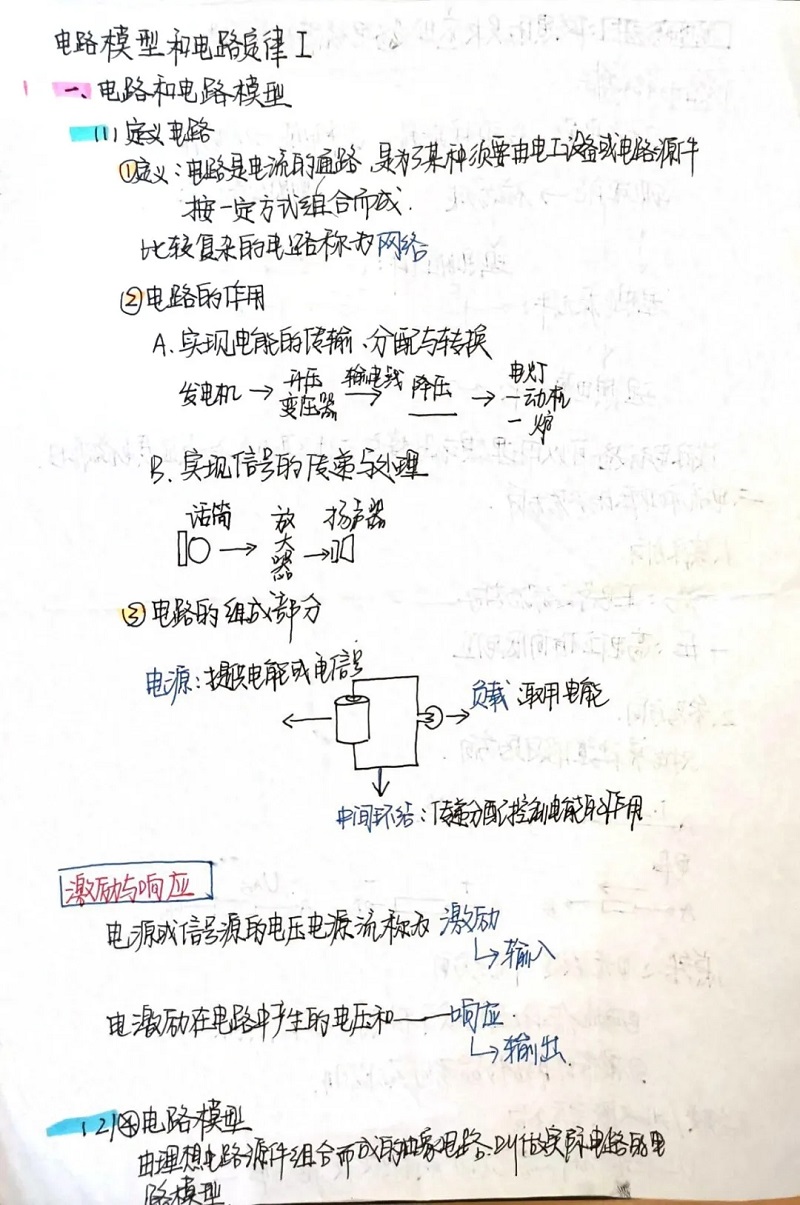 电路模型和电路定律 I
一、电路和电路模型
(1) 定义电路
①定义：电路是电流的通路，是为了某种须要由电工设备或电路源件
按一定方式组合而成.
比较复杂的电路称为网络
②电路的作用
A. 实现电能的传输、分配与转换
发电机 → 升压变压器 输电线→ 降压— → 电灯 一动机 一炉
B. 实现信号的传递与处理
话筒 → 放大器 → 扬声器
③电路的组成部分
电源：提供电能或电信号
负载：取用电能
中间环结：传递分配控制电能的作用
激励与响应
电源或信号源的电压电源流称为 激励
↳输入
电激励在电路中产生的电压和——响应.
↳输出
(2)④电路模型
由理想电路源件组合而成的抽象电路.以做实际电路的电
路模型